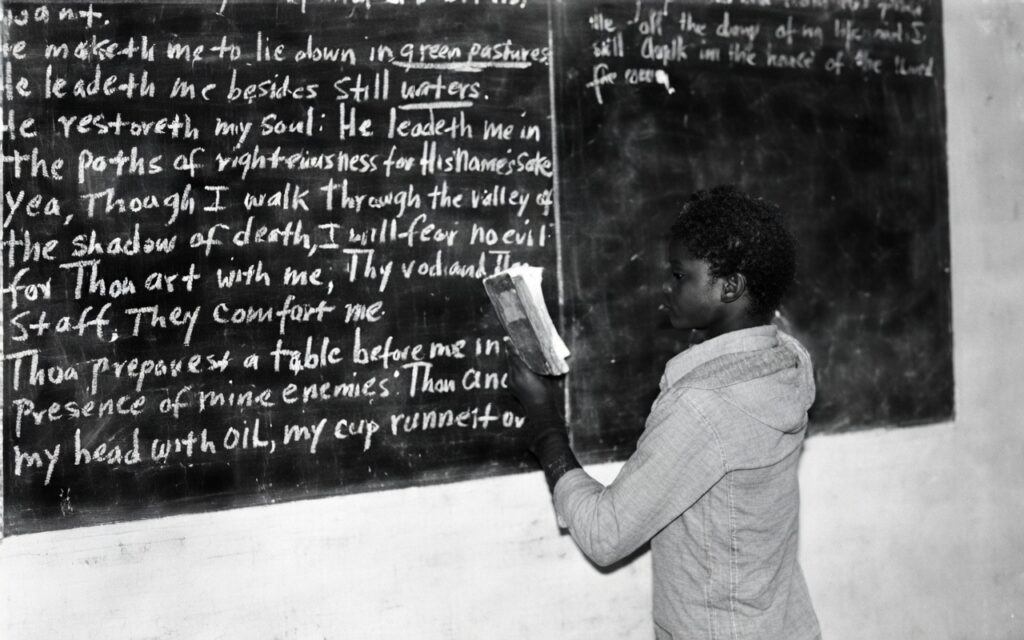 want.
e maketh me to lie down in green pastures
He leadeth me besides still waters.
He restoreth my soul: He leadeth me in
the paths of righteiusness for His Name's Sake
Yea, Though I walk through the valley of
the shadow of death, I will fear no evil
for Thou art with me; Thy rod and
Staff, They comfort me.
Thou preparest a table before me in
presence of mine enemies: Thou
my head with OIL, my cup runnett
all the days of my life and I
will in the house of the Lord